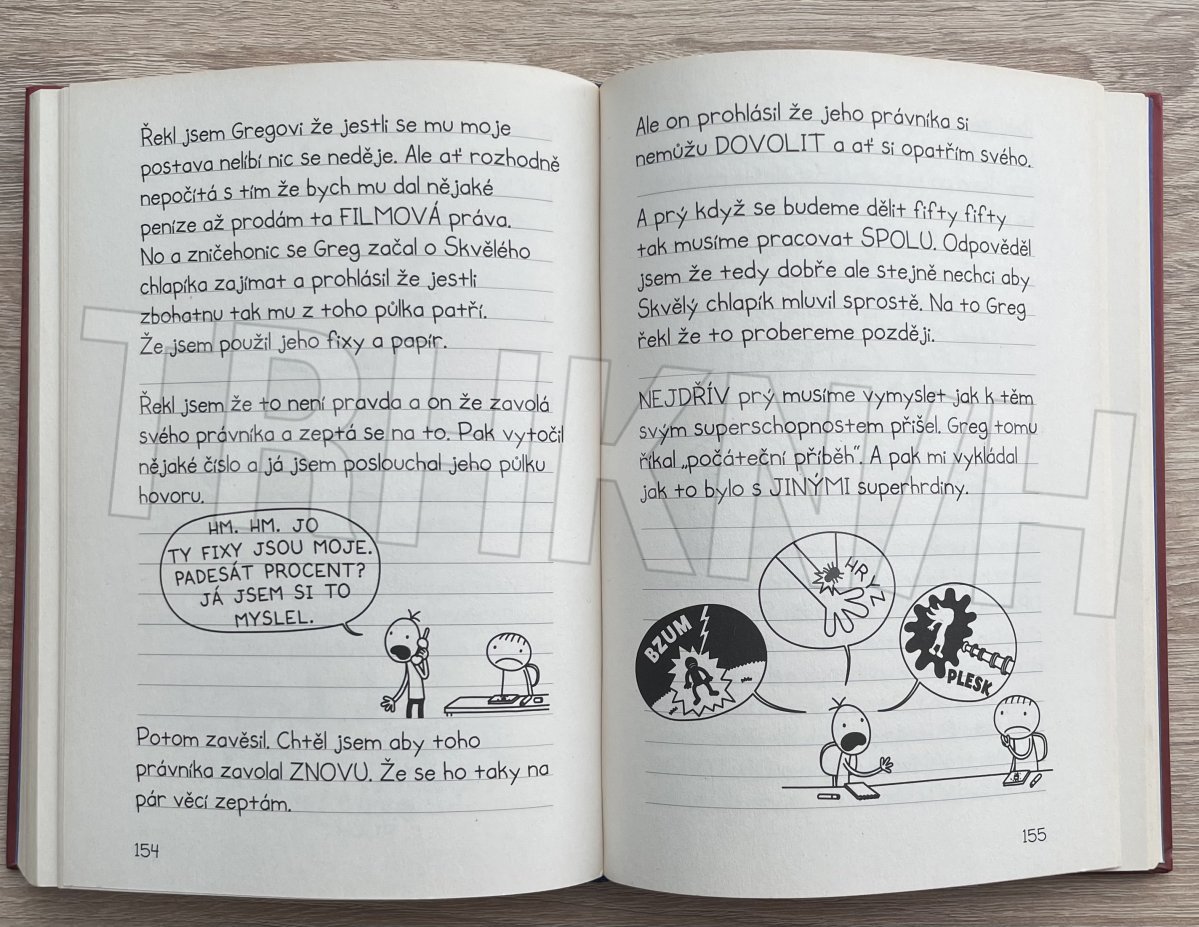 Řekl jsem Gregovi že jestli se mu moje
postava nelíbí nic se neděje. Ale ať rozhodně
nepočítá s tím že bych mu dal nějaké
peníze až prodám ta FILMOVÁ práva.
No a zničehonic se Greg začal o Skvělého
chlapíka zajímat a prohlásil že jestli
zbohatnu tak mu z toho půlka patří.
Že jsem použil jeho fixy a papír.
Řekl jsem že to není pravda a on že zavolá
svého právníka a zeptá se na to. Pak vytočil
nějaké číslo a já jsem poslouchal jeho půlku
hovoru.
HM. HM. JO
TY FIXY JSOU MOJE.
PADESÁT PROCENT?
JÁ JSEM SI TO
MYSLEL.
Potom zavěsil. Chtěl jsem aby toho
právníka zavolal ZNOVU. Že se ho taky na
pár věcí zeptám.
154
Ale on prohlásil že jeho právníka si
nemůžu DOVOLIT a ať si opatřím svého.
A prý když se budeme dělit fifty fifty
tak musíme pracovat SPOLU. Odpověděl
jsem že tedy dobře ale stejně nechci aby
Skvělý chlapík mluvil sprostě. Na to Greg
řekl že to probereme později.
NEJDŘÍV prý musíme vymyslet jak k těm
svým superschopnostem přišel. Greg tomu
říkal „počáteční příběh". A pak mi vykládal
jak to bylo s JINÝMI superhrdiny.
BZUM
PLESK
155
TRHKNIH